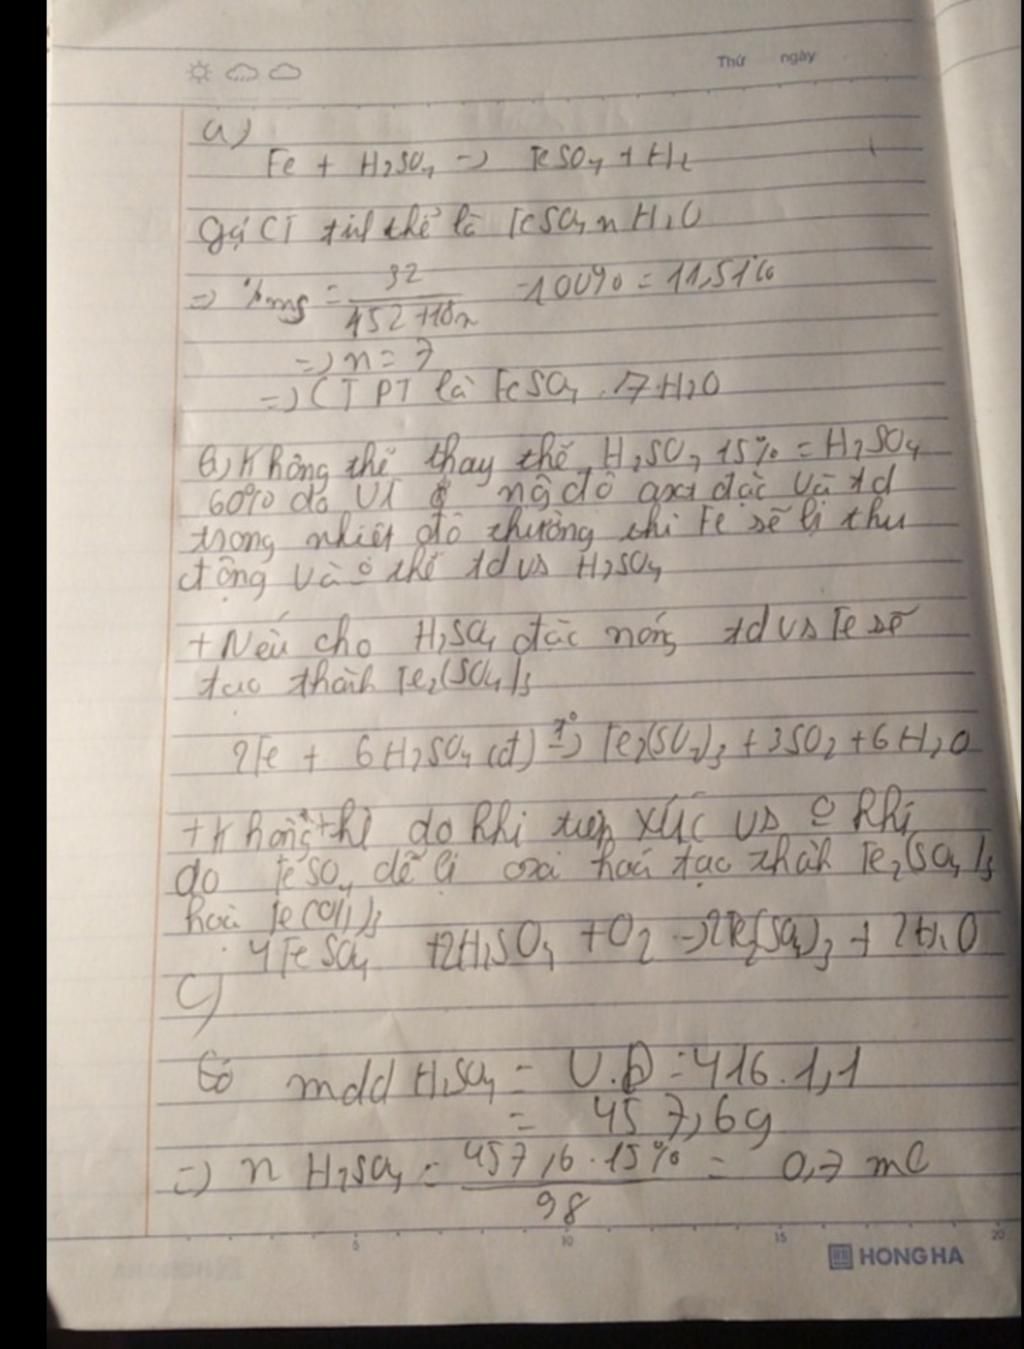 Thứ ngày
a)
Fe + H2SO4 -> FeSO4 + H2
gọi CT tinh thể là FeSO4 n H2O
=> %mS = 32 / 152 + 18n . 100% = 11,51%
=> n = 7
=> CTPT là FeSO4 . 7H2O
b, Không thể thay thế H2SO4 15% = H2SO4
60% do VT ở ng độ axi đặc và td
trong nhiệt độ thường thì Fe sẽ bị thu
động và o thể td vs H2SO4
+ Nếu cho H2SO4 đặc nóng td vs Fe sẽ
tạo thành Fe2(SO4)3
2Fe + 6H2SO4 (đ) t° -> Fe2(SO4)3 + 3SO2 + 6H2O
+ Không thể do khi tiếp xúc vs o khí
do FeSO4 dễ bị oxi hoá tạo thành Fe2(SO4)3
hoà Fe(OH)3
4FeSO4 + 2H2SO4 + O2 -> 2Fe2(SO4)3 + 2H2O
c)
Có mdd H2SO4 = V.D = 416.1,1
= 457,6g
=> n H2SO4 = 457,6 . 15% / 98 = 0,7 mol
5 10 15 20
HONG HA